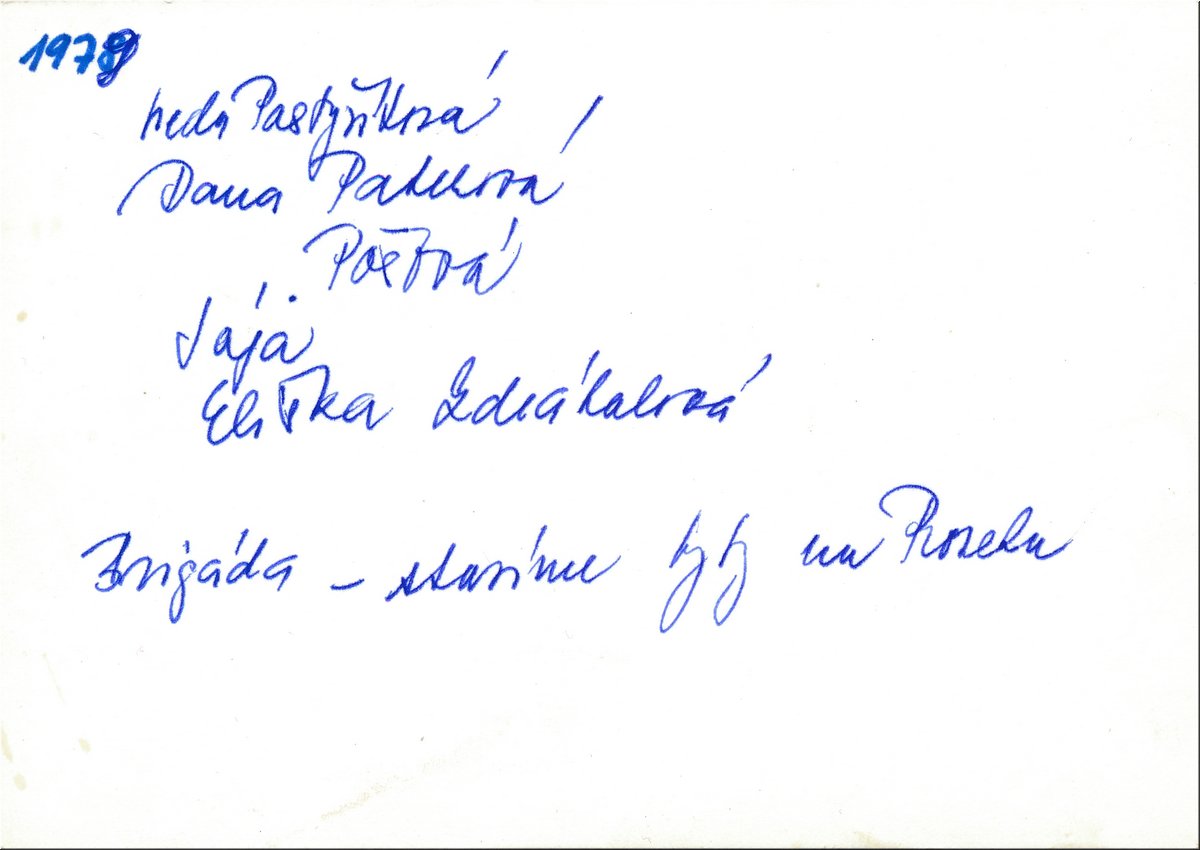 1979
Heda Pastyříková
Dana
Jája
Eliška Zdráhalová
Brigáda – stavíme byty na Proseku